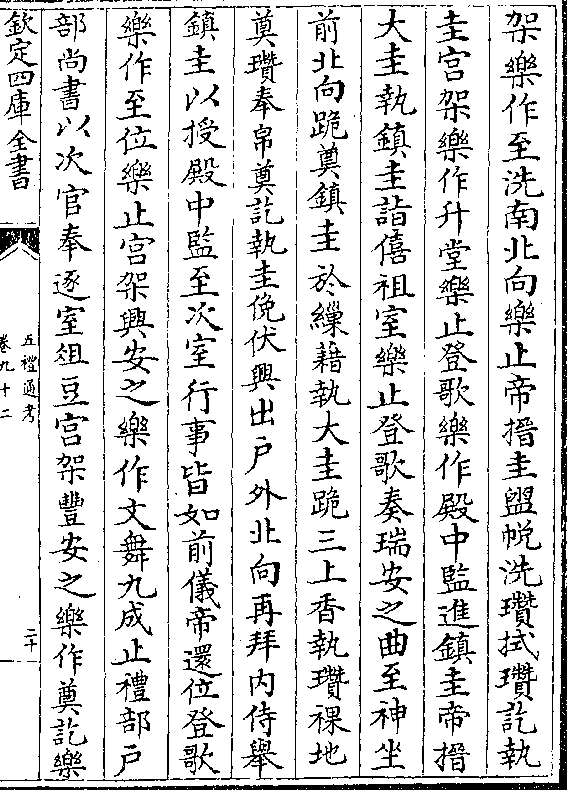 架樂作至洗南北向樂止帝搢圭盥帨洗瓚拭瓚訖執
圭宮架樂作升堂樂止登歌樂作殿中監進鎮圭帝搢
大圭執鎮圭詣僖祖室樂止登歌奏瑞安之曲至神坐
前北向跪奠鎮圭於繅藉執大圭跪三上香執瓚祼地
奠瓚奉帛奠訖執圭俛伏興出戶外北向再拜內侍舉
鎮圭以授殿中監至次室行事皆如前儀帝還位登歌
樂作至位樂止宮架興安之樂作文舞九成止禮部戶
部尚書以次官奉逐室俎豆宮架豐安之樂作奠訖樂
欽定四庫全書
五禮通考
卷九十二
二十